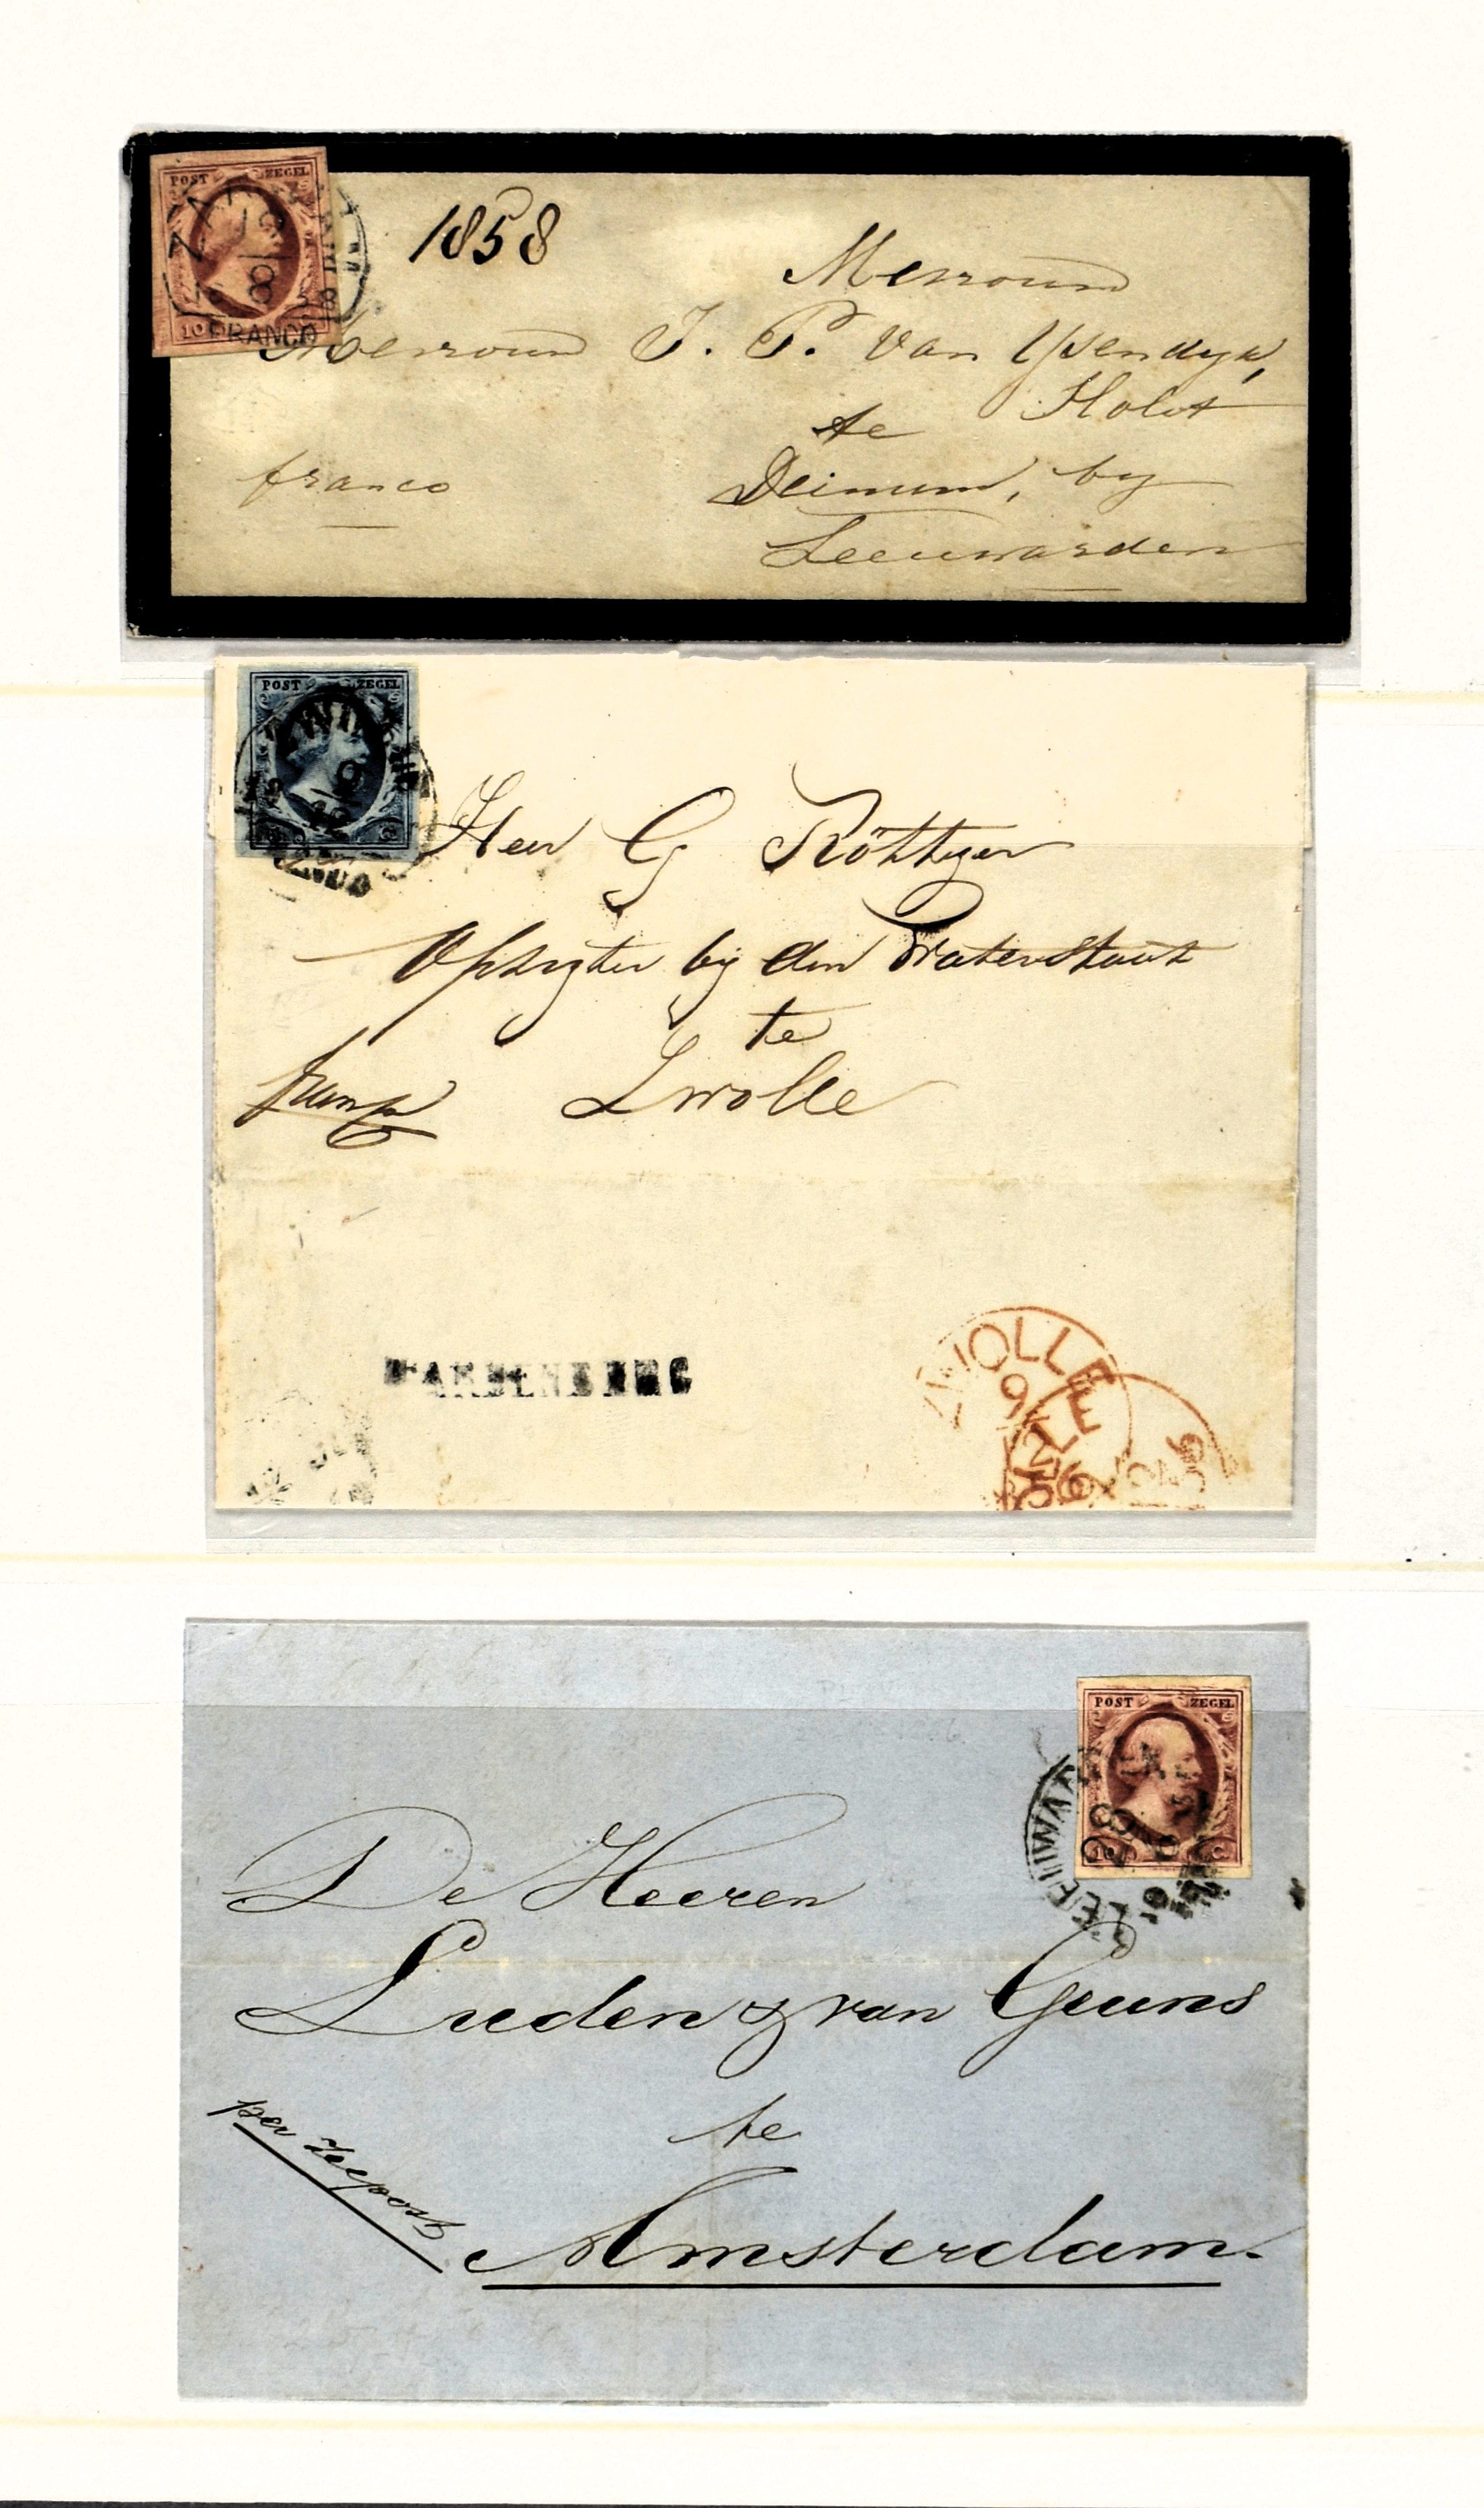 POST ZEGEL
1858
Mevrouw
Mevrouw J. P. van Ysendyk,
Holst
te
franco
Deinum, by
Leeuwarden
10
FRANCO
POST ZEGEL
Heer G Röttger
Opzigter by den Waterstaat
te
Zwolle
ZWOLLE
9
POST ZEGEL
LEEUWARDEN
De Heeren
Luden & van Geuns
te
per Zeepost
Amsterdam.